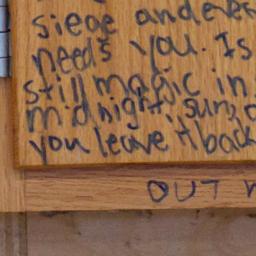 siege and
needs you. Is
still magic in
midnight, sun,
you leave it back
OUT